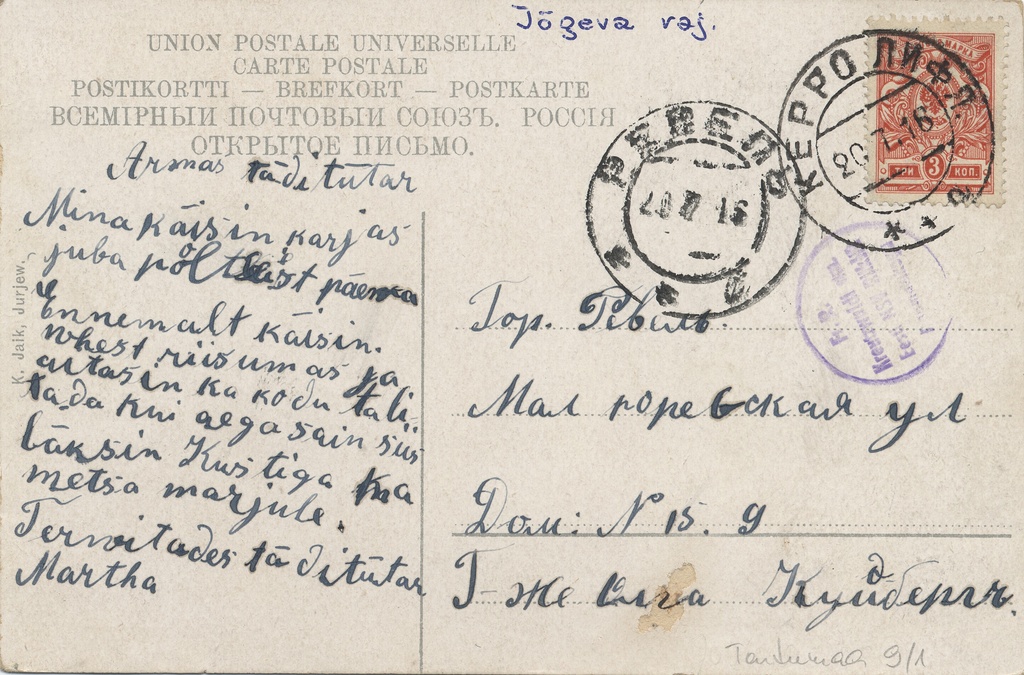 Jõgeva raj.
UNION POSTALE UNIVERSELLE
CARTE POSTALE
POSTIKORTTI — BREFKORT — POSTKARTE
ВСЕМІРНЫЙ ПОЧТОВЫЙ СОЮЗЪ. РОССІЯ
ОТКРЫТОЕ ПИСЬМО.
Armas täditütar
Mina käisin karjas
juba pôlt päewa
Ennemalt käisin.
whest riisumas ja
aitasin ka kodu tali
tada kui aega sain siis
läksin Kustiga ka
metsa marjule.
Terwitades täditütar
Martha
K. Jaik, Jurjew.
КЕРРО ЛИФЛ.
20.7.16
РЕВЕЛЬ
20 7 16
ТРИ 3 КОП.
Гор. Ревель.
Мал юревская ул
Дом: N 15. 9
Г-же Олга Куйдбергъ
9/1